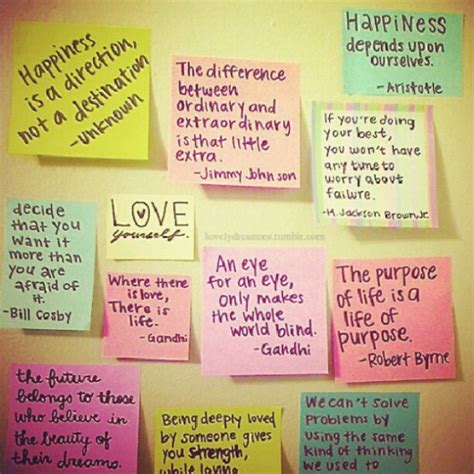 Happiness
is a direction,
not a destination
-unknown
The difference
between
ordinary and
extraordinary
is that little
extra.
-Jimmy Johnson
HAPPiNESS
depends upon
ourselves.
-Aristotle
If you're doing
your best,
you won't have
any time to
worry about
failure.
-H. Jackson Brown, Jr.
decide
that you
want it
more than
you are
afraid of
it.
-Bill Cosby
LOVE
yourself.
lovelydreamms.tumblr.com
Where there
is love,
There is
life.
-Gandhi
An eye
for an eye,
only makes
the whole
world blind.
-Gandhi
The purpose
of life is a
life of
purpose.
-Robert Byrne
the future
belongs to those
who believe in
the beauty of
their dreams.
Being deeply loved
by someone gives
you strength,
while loving
We can't solve
problems by
using the same
kind of thinking
we used to